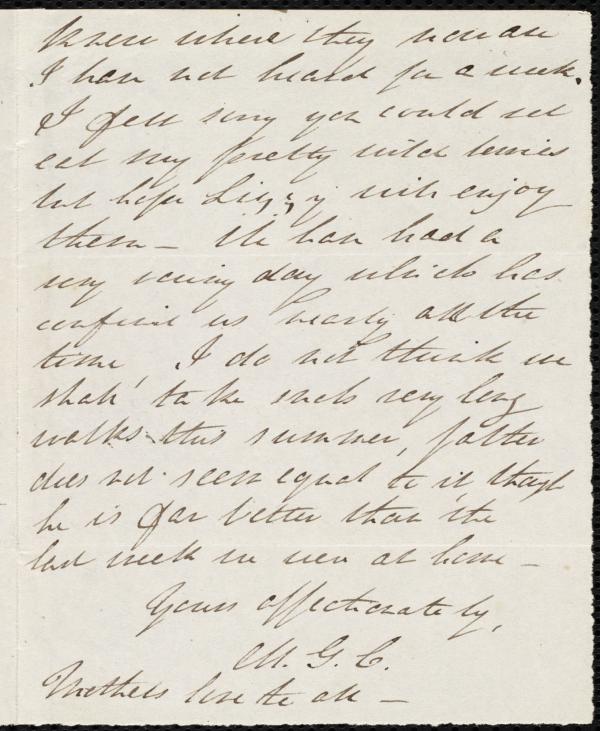 know where they now are
I have not heard for a week.
I felt sorry you could not
eat my pretty wild berries
but hope Lizzy will enjoy
them — We have had a
very rainy day which has
confined us nearly all the
time. I do not think we
shall take such very long
walks this summer, father
does not seem equal to it, though
he is far better than the
last week we were at home —
Yours affectionately,
M. G. C.
Mother's love to all —